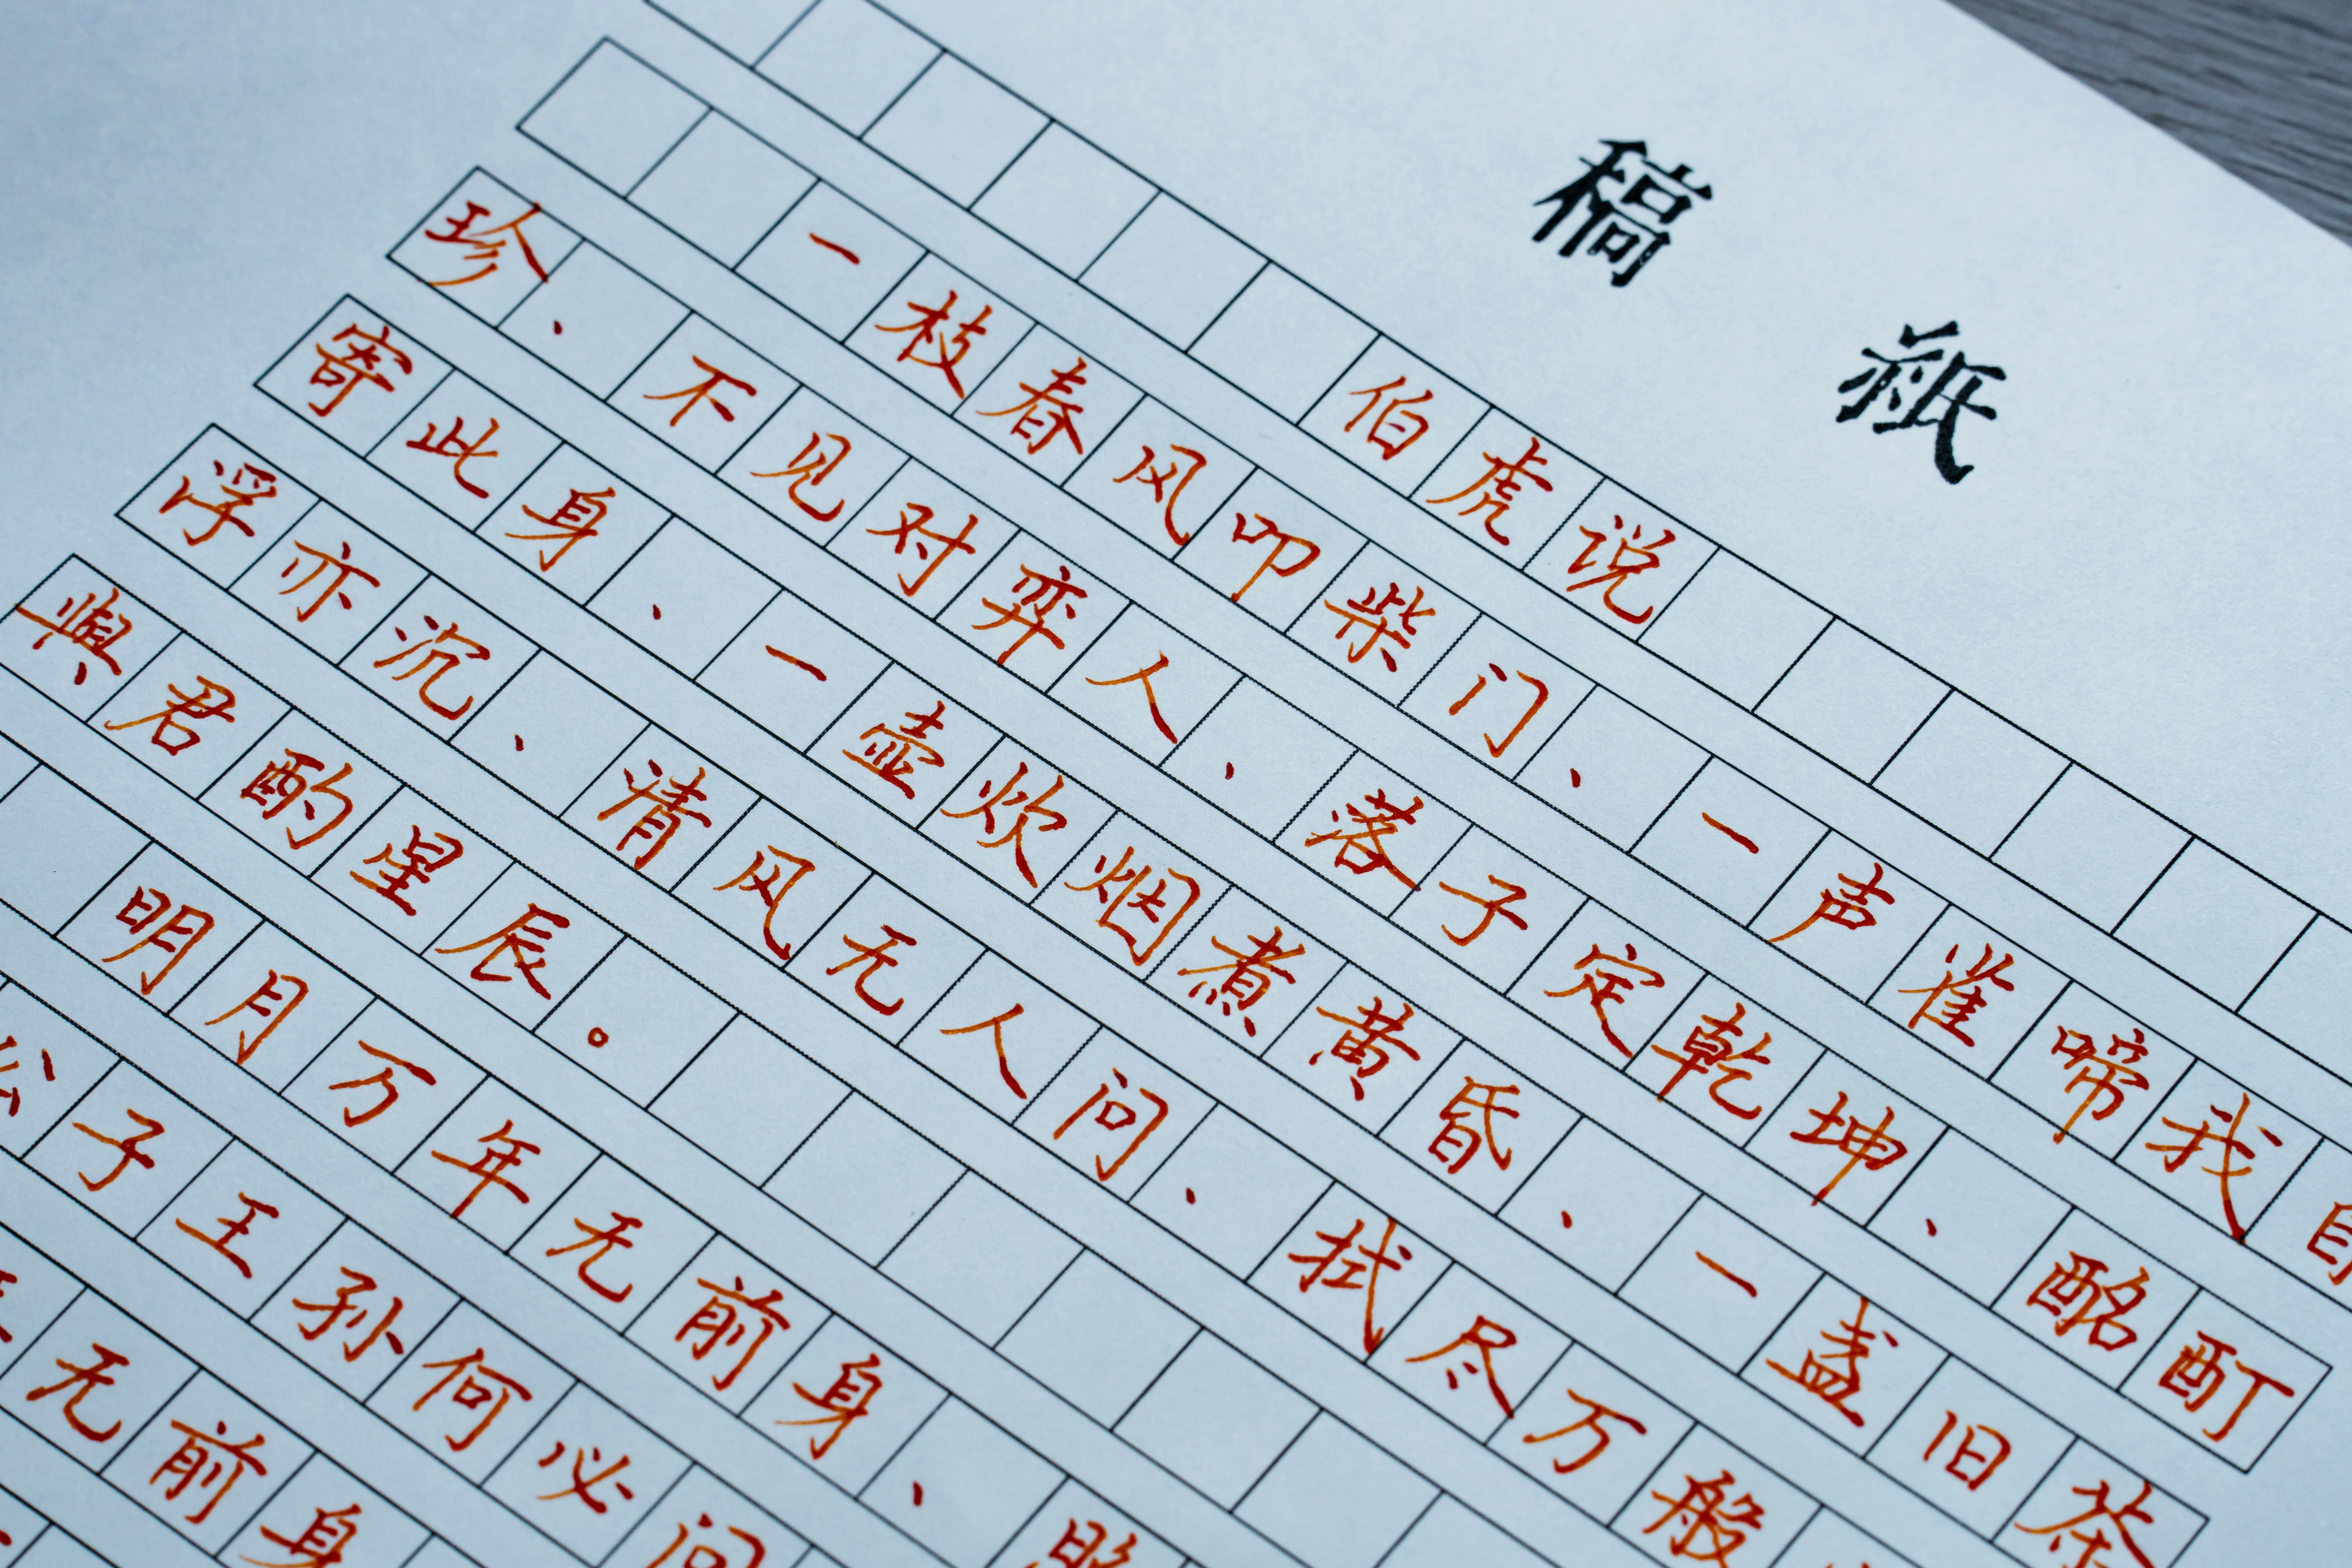 稿紙
伯虎说
一枝春风叩柴门、一声雀啼我自
珍、不见对弈人、落子定乾坤、酩酊
寄此身、一壶炊烟煮黄昏、一盏旧茶
浮亦沉、清风无人问、拭尽万般
與君酌星辰。
明月万年无前身、照
公子王孙何必问
无前身